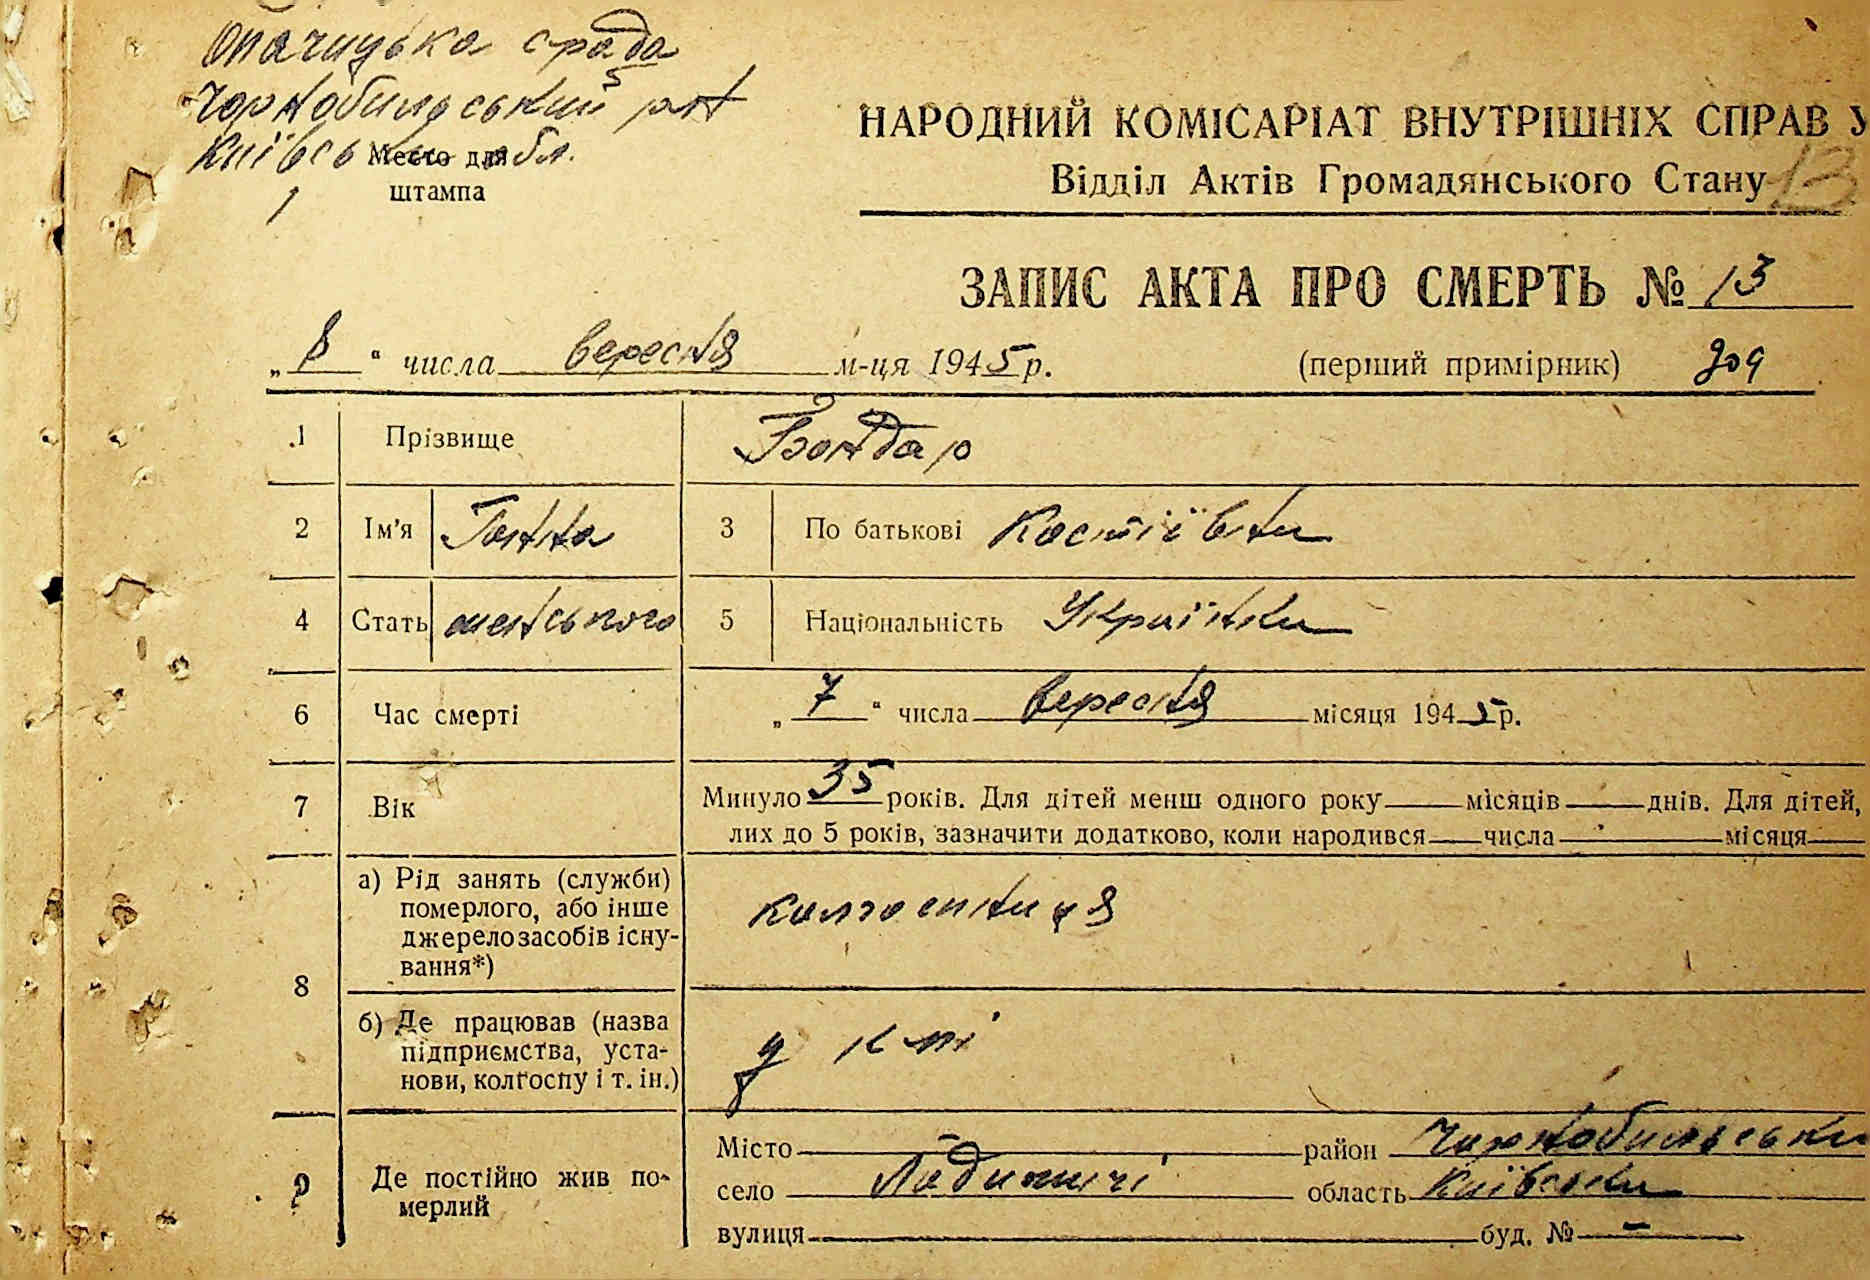 Опачицька с рада
Чорнобильський р-н
Київськ обл.
Место для
штампа
НАРОДНИЙ КОМІСАРІАТ ВНУТРІШНІХ СПРАВ У
Відділ Актів Громадянського Стану
13
ЗАПИС АКТА ПРО СМЕРТЬ № 13
„8“ числа вересня м-ця 1945 р. (перший примірник)
1 Прізвище Бондар
2 Ім'я Ганна 3 По батькові Костіївни
4 Стать женського 5 Національність Українки
6 Час смерті „7“ числа вересня місяця 1945 р.
7 Вік Минуло 35 років. Для дітей менш одного року — місяців — днів. Для дітей,
лих до 5 років, зазначити додатково, коли народився — числа — місяця
8 а) Рід занять (служби) померлого, або інше джерело засобів існування*) колгоспниця
б) Де працював (назва підприємства, установи, колгоспу і т. ін.) у к-пі
9 Де постійно жив померлий
Місто — район Чорнобильськи
село Ладижичі область Київськи
вулиця — буд. № —